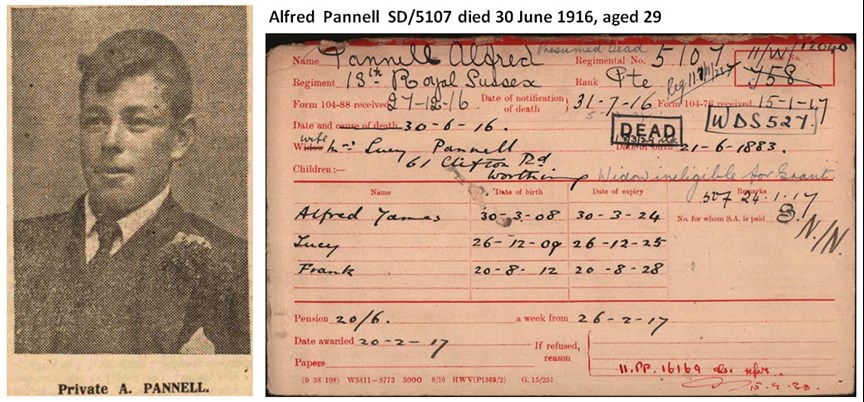 Alfred Pannell SD/5107 died 30 June 1916, aged 29
Private A. PANNELL.
Name Pannell Alfred Presumed Dead Regimental No. 5107 11/W/
Regiment 13th Royal Sussex Rank Pte 758
Form 104-88 received 27-12-16 Date of notification of death } 31-7-16 Form 104-76 received 15-1-17
Date and cause of death 30-6-16. DEAD WDS527.
wife Widow Mrs Lucy Pannell Date of birth 21-6-1883.
61 Clifton Rd
Worthing Widow ineligible for Grant
Children:— 507 24.1.17
Name Date of birth Date of expiry Remarks
Alfred James 30-3-08 30-3-24 No. for whom S.A. is paid 3
Lucy 26-12-09 26-12-25 N/N.
Frank 20-8-12 20-8-28
Pension 20/6. a week from 26-2-17
Date awarded 20-2-17 If refused, reason
Papers 11.PP.16169
(D 38 108) W5811—8773 5000 8/16 HWV(P1369/2) G.15/251 15.9.23.